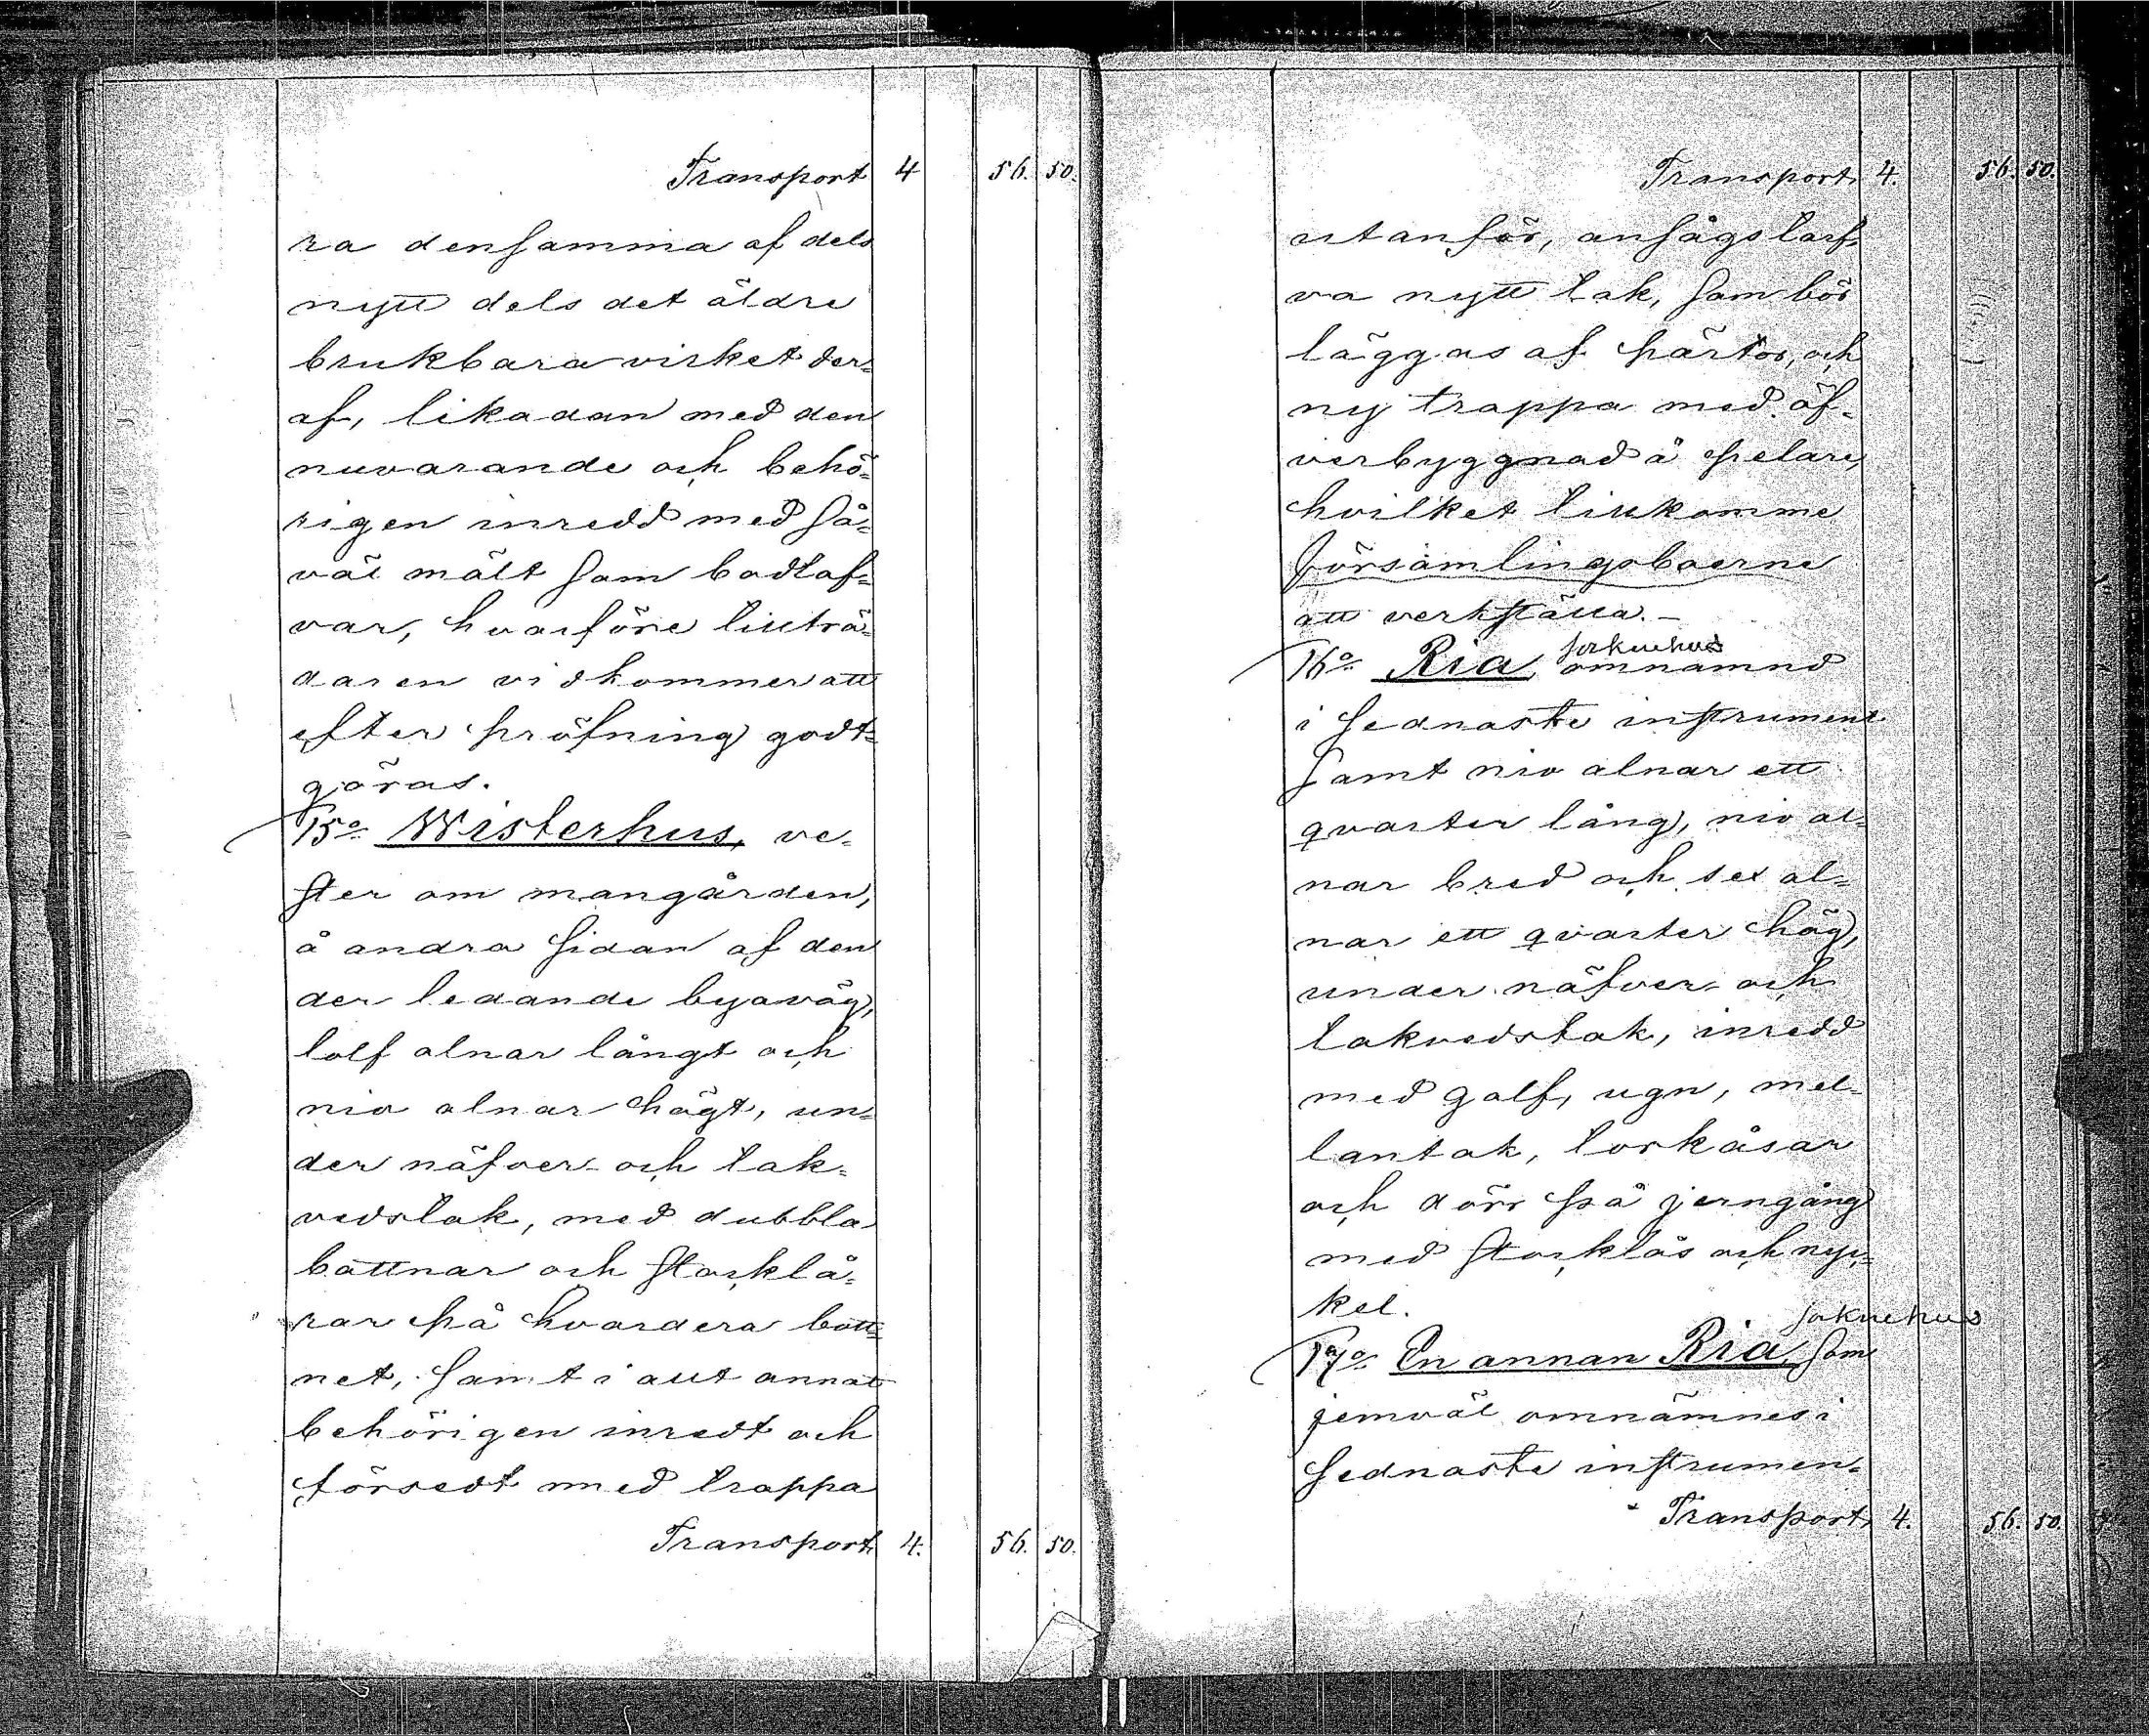 Transport 4 56. 50.
ra densamma af dels
nytt dels det äldre
brukbara virket der-
af, likadan med den
nuvarande och behö-
rigen inredd med så-
väl mält som badlaf-
var, hvarföre tillträ-
daren vidkommer att
efter pröfning godt-
göras.
15o Wisterhus, ve-
ster om mangården,
å andra sidan af den
der ledande byaväg,
tolf alnar långt och
nio alnar högt, un-
der näfver- och tak-
vedstak, med dubbla
bottnar och stocklå-
rar på hvardera bott-
net, samt i allt annat
behörigen inredt och
försedt med trappa
Transport 4. 56. 50.
Transport 4. 56. 50.
utanför, ansågs tarf-
va nytt tak, som bör
läggas af pärtor, och
ny trappa med öf-
verbyggnad å pelare,
hvilket tillkomme
församlingsboerne
att verkställa. -
torkuehus
16o Ria, omnämnd
i sednaste instrument
samt nio alnar ett
qvarter lång, nio al-
nar bred och sex al-
nar ett qvarter hög,
under näfver- och
takvedstak, inredd
med golf, ugn, mel-
lantak, torkåsar
och dörr på jerngång
med stocklås och nyc-
kel.
torkuehus
17o En annan Ria, som
jemväl omnämnes i
sednaste instrumen-
Transport 4. 56. 50.